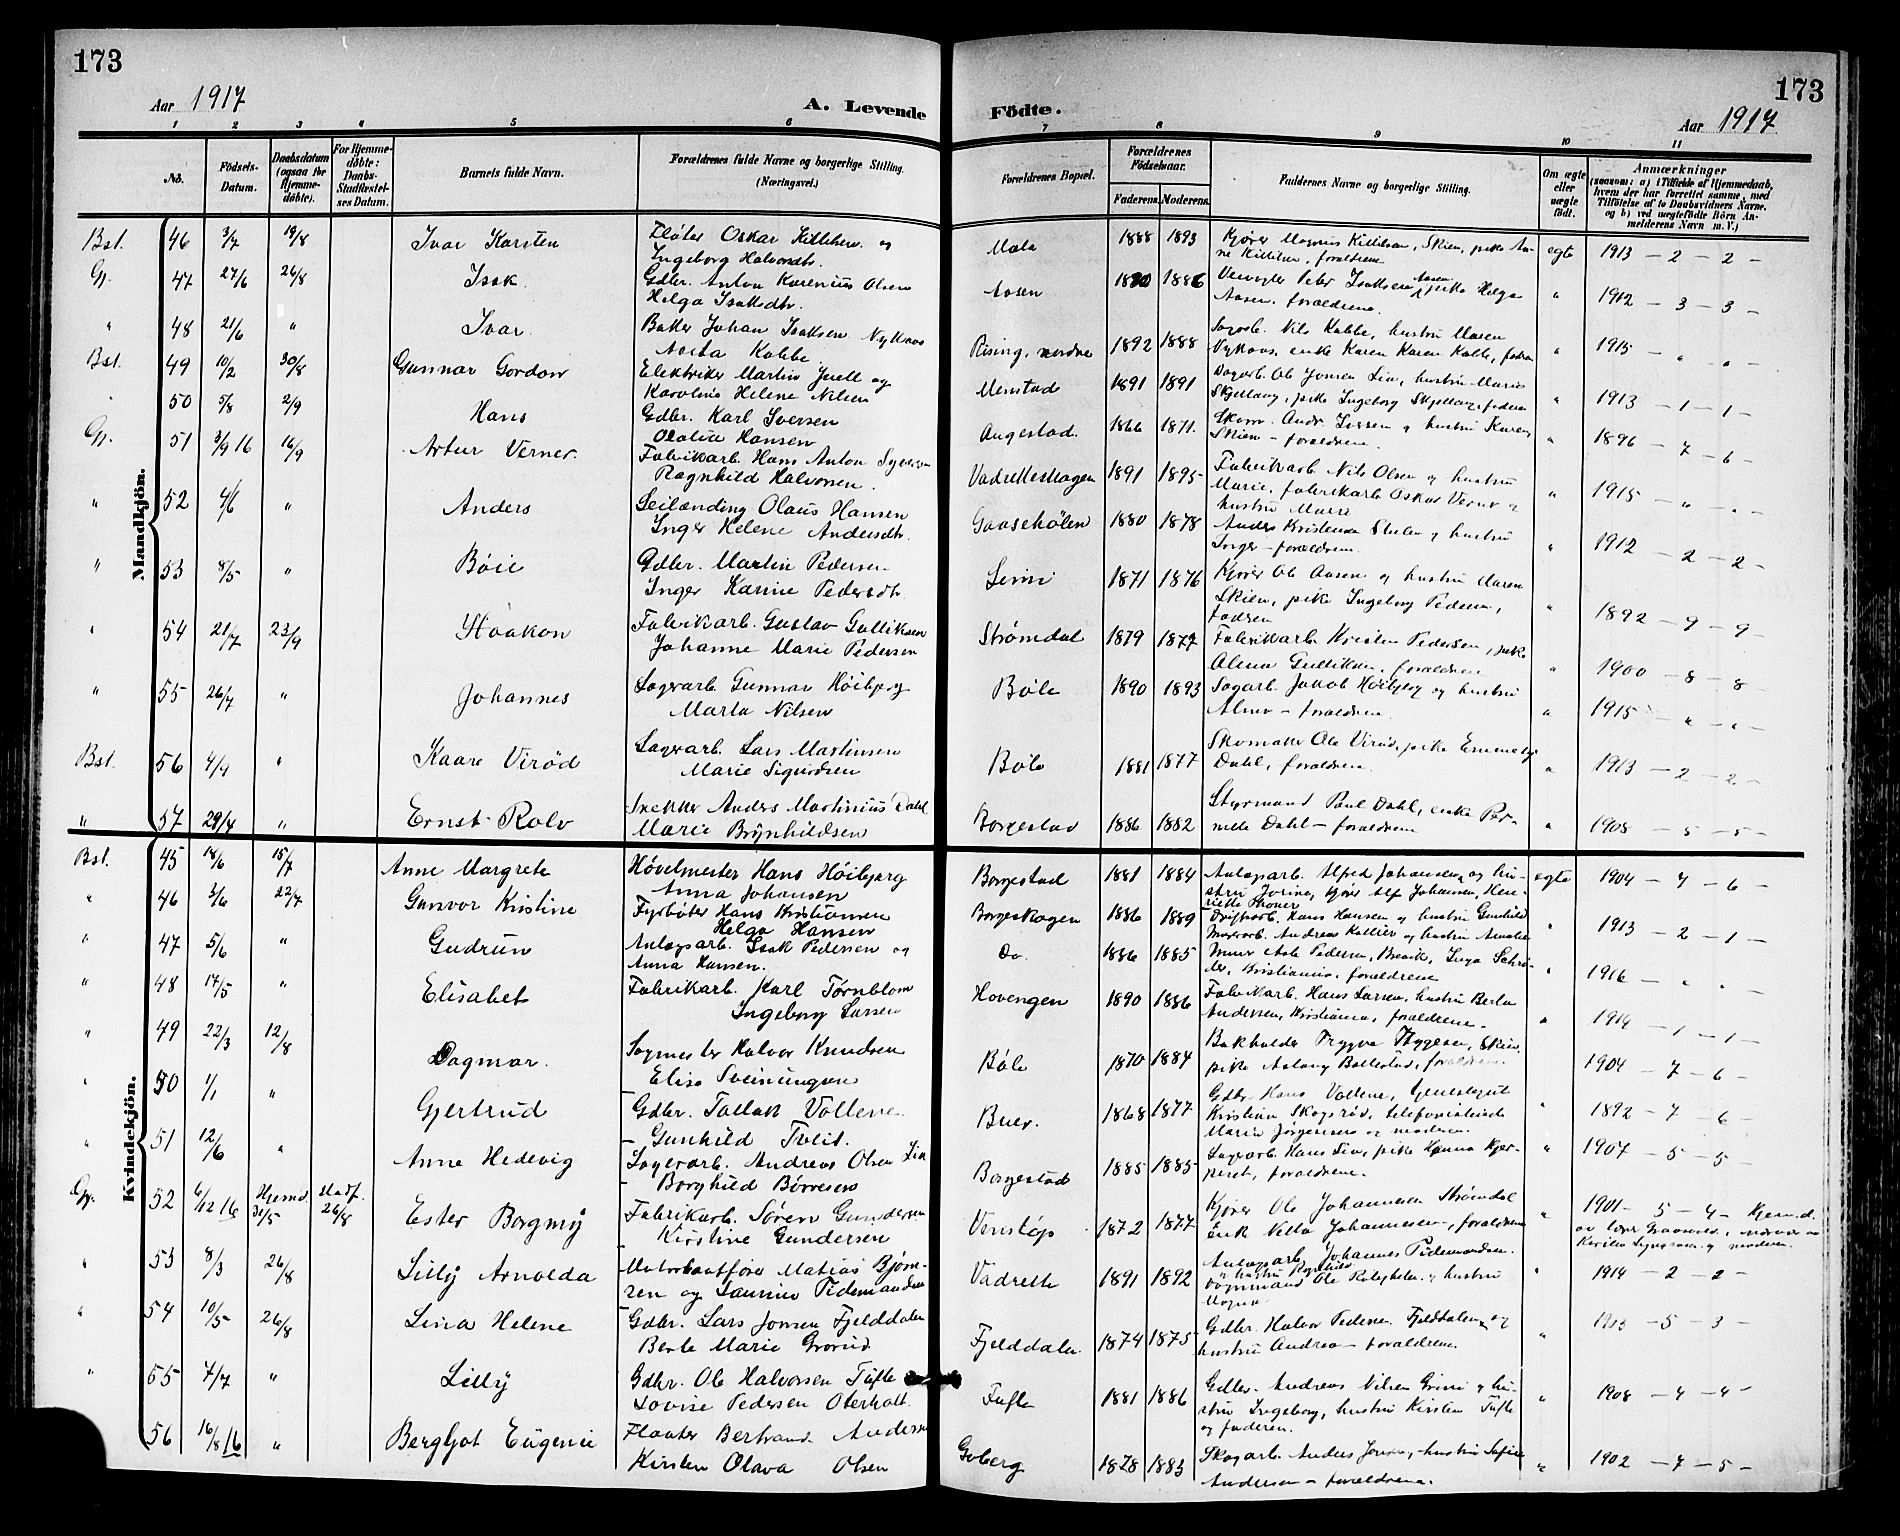 173
173
Aar 1917
A. Levende
Födte.
Aar 1917
1 2 3 4 5 6 7 8 9 10 11
No.
Födsels-
Datum.
Daabsdatum
(ogsaa for
Hjemme-
döbte).
For Hjemme-
döbte:
Daabs-
Stadfæstel-
ses Datum.
Barnets fulde Navn.
Forældrenes fulde Navne og borgerlige Stilling.
(Næringsvei.)
Forældrenes Bopæl.
Forældrenes
Födselsaar.
Faderens. Moderens.
Faddernes Navne og borgerlige Stilling.
Om ægte
eller
uægte
födt.
Anmærkninger
(saasom: a) i Tilfælde af Hjemmedaab,
hvem der har forrettet samme, med
Tilföielse af to Daabsvidners Navne,
og b) ved uægtefödte Börn An-
melderens Navn m. V.)
Mandkjön.
Bst. 46 3/7 19/8 Ivar Karsten Fløter Oskar Killiksen og
Ingeborg Halvorsdtr.
Mæla 1888 1893 Kjører Magnus Killiksen, Skien, pike
Killiksen, forældrene
egte 1913 - 2 - 2 -
Gj. 47 27/6 26/8 Isak Gdbr. Anton Karenius Olsen
Helga Isaksdtr.
Aasen 1880 1886 Peter Isaksen Aasen, pike Helga
Aasen, forældrene
" 1912 - 3 - 3 -
" 48 21/6 " Ivar Baker Johan Isaksen Nykaas
Aasta Kabbe
Rising, nordre 1892 1888 Sagarb. Nils Kabbe, hustru Maren
Nykaas, enke Karen Karen Kabbe,
" 1915 - " - " -
Bst. 49 10/2 30/8 Gunnar Gordon Elektriker Martin Juell og
Karoline Helene Nilsen
Menstad 1891 1891 Dagarb. Ole Jensen Lia, hustru Marie
Skjellaug, pike Ingeborg Skjellaug, faderen
" 1913 - 1 - 1 -
" 50 5/8 2/9 Hans Gdbr. Karl Iversen
Olalia Hansen
Augestad. 1866 1871. Andr. Iversen og hustru Karen,
Skien - forældrene.
" 1896 - 7 - 6 -
Gj. 51 3/9 16 16/9 Artur Verner Fabrikarb. Hans Anton
Ragnhild Halvorsen.
Vadretteshagen 1891 1895 Fabrikarb. Nils Olsen og hustru
Marie, fabrikarb. Oskar Verner og
hustru Marie
" 1915 - " - " -
" 52 4/6 " Anders Leilænding Olaus Hansen
Inger Helene Andersdtr.
Gaasehølen 1880 1878 Anders Kristensen og hustru
Inger - forældrene.
" 1912 - 2 - 2 -
" 53 8/5 " Bøie Gdbr. Martin Pedersen
Inger Karine Pedersdtr.
Limi 1871 1876 Kjører Ole Aasen og hustru Maren
Skien, pike Ingeborg Pedersen,
fadren
" 1892 - 9 - 9 -
" 54 21/7 23/9 Haakon Fabrikarb. Gustav Gulliksen
Johanne Marie Pedersen
Strømdal 1879 1877 Fabrikarb. Kristen Pedersen, pike
Olena Gulliksen, forældrene
" 1900 - 8 - 8 -
" 55 26/7 " Johannes Sagarb. Gunnar Høibjerg
Marta Nilsen
Bøle 1890 1893 Sagarb. Jakob Høibjerg og hustru
Alma - forældrene.
" 1915 - " - " -
Bst. 56 4/9 " Kaare Virød Lagerarb. Lars Martinsen
Marie Sigurdsen
Bøle 1881 1877 Skomaker Ole Virød, pike Emmely
Dahl, forældrene.
" 1913 - 2 - 2 -
" 57 29/4 " Ernst Rolv Snekker Anders Martinius Dahl
Marie Brynhildsen
Borgestad 1886 1882 Styrmand Paul Dahl, enke Per-
nelle Dahl - forældrene
" 1908 - 5 - 5 -
Kvindekjön.
Bst. 45 18/6 15/7 Anne Margrete Høvelmester Hans Høibjerg
Anna Johansen
Borgestad 1881 1884 Anlægsarb. Alfred Johansen og hu-
stru Jorine, kjører Alf Johansen, Hen-
riette Thoner
egte 1904 - 7 - 6 -
" 46 3/6 22/7 Gunvor Kristine Fyrbøter Hans Kristiansen
Helga Hansen
Borgeskogen 1886 1889 Driftsarb. Hans Hansen og hustru Gunhild
Andreas Kallier og hustru Amalie
" 1913 - 2 - 1 -
" 47 5/6 " Gudrun Anlægsarb. Isak Pedersen og
Anna Hansen.
Do. 1886 1885 Murer Pedersen, Brevik, Inga Schrø-
der, Kristiania, forældrene
" 1916 - " - " -
" 48 17/5 " Elisabet Fabrikarb. Karl Tørnblom
Ingeborg Larsen
Hovengen 1890 1886 Fabrikarb. Hans Larsen, hustru Berta
Andersen, Kristiania, forældrene.
" 1914 - 1 - 1 -
" 49 22/3 12/8 Dagmar. Sagmester Halvor Knudsen
Elise Sveinungsen
Bøle 1870 1884 Bokholder Trygve Thygesen, Skien,
pike Aslaug Bollestad, forældrene.
" 1904 - 7 - 6 -
" 50 1/1 " Gjertrud Gdbr. Tallak Vollene
Gunhild Tveit.
Buer. 1868 1877 Gdbr. Hans Vollene,
Kristian Skogsrød, telefonistinde
Marie Jørgensen og moderen.
" 1892 - 7 - 6 -
" 51 12/6 " Anne Hedevig Lagerarb. Andreas Olsen Lia
Borghild Børresen
Borgestad 1885 1885 Lagerarb. Hans Lia, pike Hanna Kjer-
peset, forældrene.
" 1907 - 5 - 5 -
Gj. 52 6/12 16 Hjemd. 31/5 Stadf. 26/8 Ester Borgny Fabrikarb. Søren Gundersen
Kirstine Gundersen
Venstøp 1872 1877 Kjører Ole Johannesen Strømdal
Enke Nella Johannesen, forældrene
" 1901 - 5 - 4 - Hjemd.
av
og moderen.
" 53 8/3 26/8 Lilly Arnolda Motorbaatfører Matias Bjørn-
sen og Laurine Tidemandsen
Vadrette 1891 1892 Anlægsarb. Johannes Tidemandsen.
og hustru Ragnhild
vognmand Ole og hustru
Magna
" 1914 - 2 - 2 -
" 54 10/5 26/8 Lina Helene Gdbr. Lars Jonsen Fjelddalen
Berte Marie Grorud
Fjelddalen 1874 1875 Gdbr. Halvor Pedersen Fjelddalen og
hustru Andrea - forældrene.
" 1913 - 5 - 3 -
" 55 4/7 " Lilly Gdbr. Ole Halvorsen Tufte
Lovise Pedersen Oterholt.
Tufte 1881 1886 Gdbr. Andreas Nilsen Grini og hu-
stru Ingeborg, hustru Kirsten Tufte
og faderen.
" 1908 - 4 - 4 -
56 16/8 16 " Bergljot Eugenie Fløter Bertrand Andersen
Kirsten Olava Olsen
Goberg 1878 1883 Skogarb. Anders Jensen, hustru Sofie
Andersen - forældrene.
" 1902 - 7 - 5 -